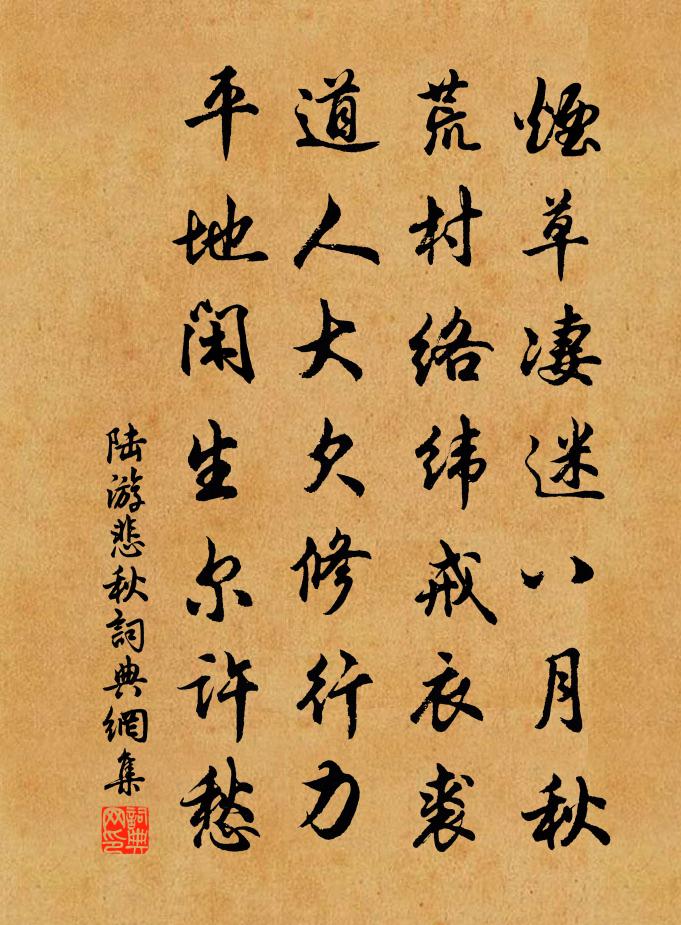 煙草凄迷八月秋
荒村络纬戒衣裘
道人大欠修行力
平地闲生尔许愁
陆游悲秋詞典網集
詞典网印